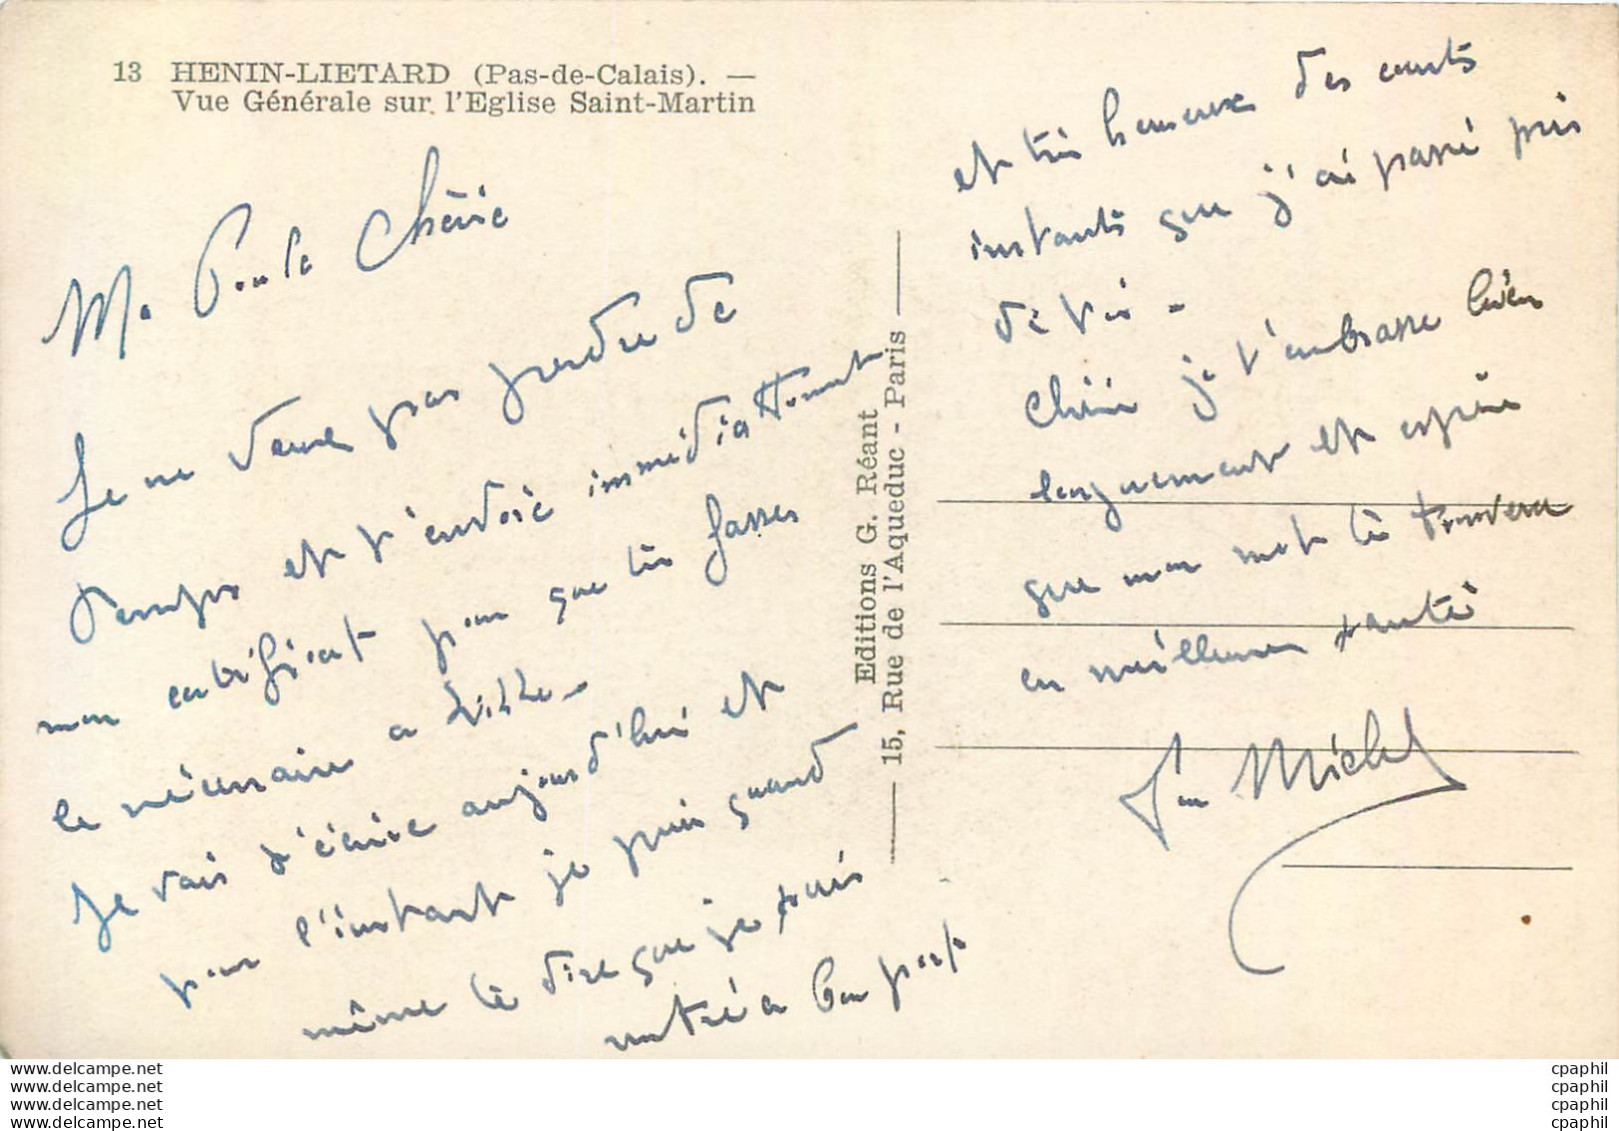 13 HENIN-LIETARD (Pas-de-Calais). —
Vue Générale sur l'Eglise Saint-Martin
Ma Poule Chérie
Je ne veux pas perdre de
temps et t'envoie immédiattement
mon certificat pour que tu fasses
le nécessaire a Lille -
Je vais t'écrire aujourd'hui et
pour l'instant je puis quand
même te dire que je suis
rentré a bon port
Editions G. Réant
15, Rue de l'Aqueduc - Paris
et très heureux des courts
instants que j'ai passé près
de toi -
Chérie je t'embrasse bien
longuement et espère
que mon mot te trouvera
en meilleure santé
Ton Michel
www.delcampe.net
www.delcampe.net
www.delcampe.net
www.delcampe.net
cpaphil
cpaphil
cpaphil
cpaphil